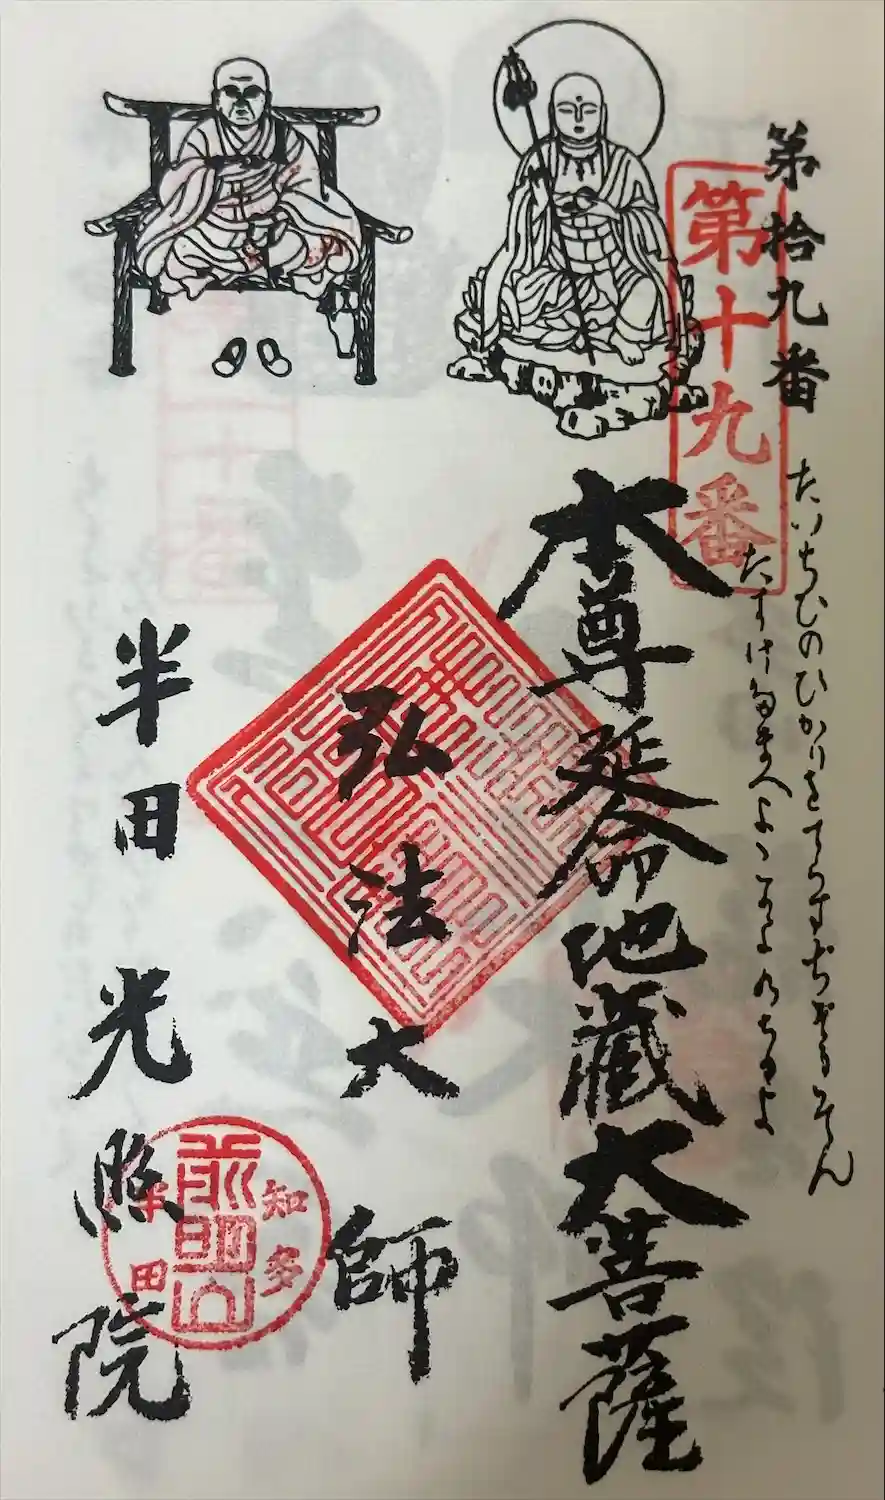 第拾九番
第十九番
たいちひのひかりをてらすぢぞうそん
たすけたまへよこのよのちのよ
本尊延命地蔵大菩薩
弘法大師
半田光照院
知多
前明山
半田